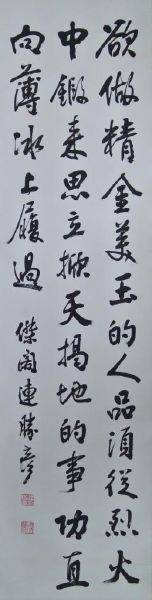 欲做精金美玉的人品須從烈火
中鍛来思立掀天揭地的事功直
向薄冰上履過
傑閣連勝彦